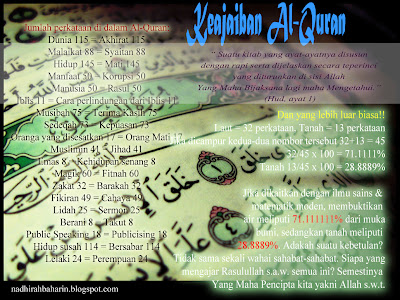 Keajaiban Al-Quran
Jumlah perkataan di dalam Al-Quran:
Dunia 115 = Akhirat 115
Malaikat 88 = Syaitan 88
Hidup 145 = Mati 145
Manfaat 50 = Korupsi 50
Manusia 50 = Rasul 50
Iblis 11 = Cara perlindungan dari Iblis 11
Musibah 75 = Terima Kasih 75
Sedeqah 73 = Kepuasan 73
Oranga yang disesatkan 17 = Orang Mati 17
Muslimin 41 = Jihad 41
Emas 8 = Kehidupan senang 8
Magic 60 = Fitnah 60
Zakat 32 = Barakah 32
Fikiran 49 = Cahaya 49
Lidah 25 = Sermon 25
Berani 8 = Takut 8
Public Speaking 18 = Publicising 18
Hidup susah 114 = Bersabar 114
Lelaki 24 = Perempuan 24
" Suatu kitab yang ayat-ayatnya disusun
dengan rapi serta dijelaskan secara teperinci
yang diturunkan di sisi Allah
Yang Maha Bijaksana lagi maha Mengetahui "
(Hud, ayat 1)
Dan yang lebih luar biasa!!
Laut = 32 perkataan, Tanah = 13 perkataan
Jika dicampur kedua-dua nombor tersebut 32+13 = 45
32/45 x 100 = 71.1111%
Tanah 13/45 x 100 = 28.8889%
Jika dikaitkan dengan ilmu sains &
matematik moden, membuktikan
air meliputi 71.111111% dari muka
bumi, sedangkan tanah meliputi
28.8889%. Adakah suatu kebetulan?
Tidak sama sekali wahai sahabat-sahabat. Siapa yang
mengajar Rasulullah s.a.w. semua ini? Semestinya
Yang Maha Pencipta kita yakni Allah s.w.t.
nadhirahbaharin.blogspot.com